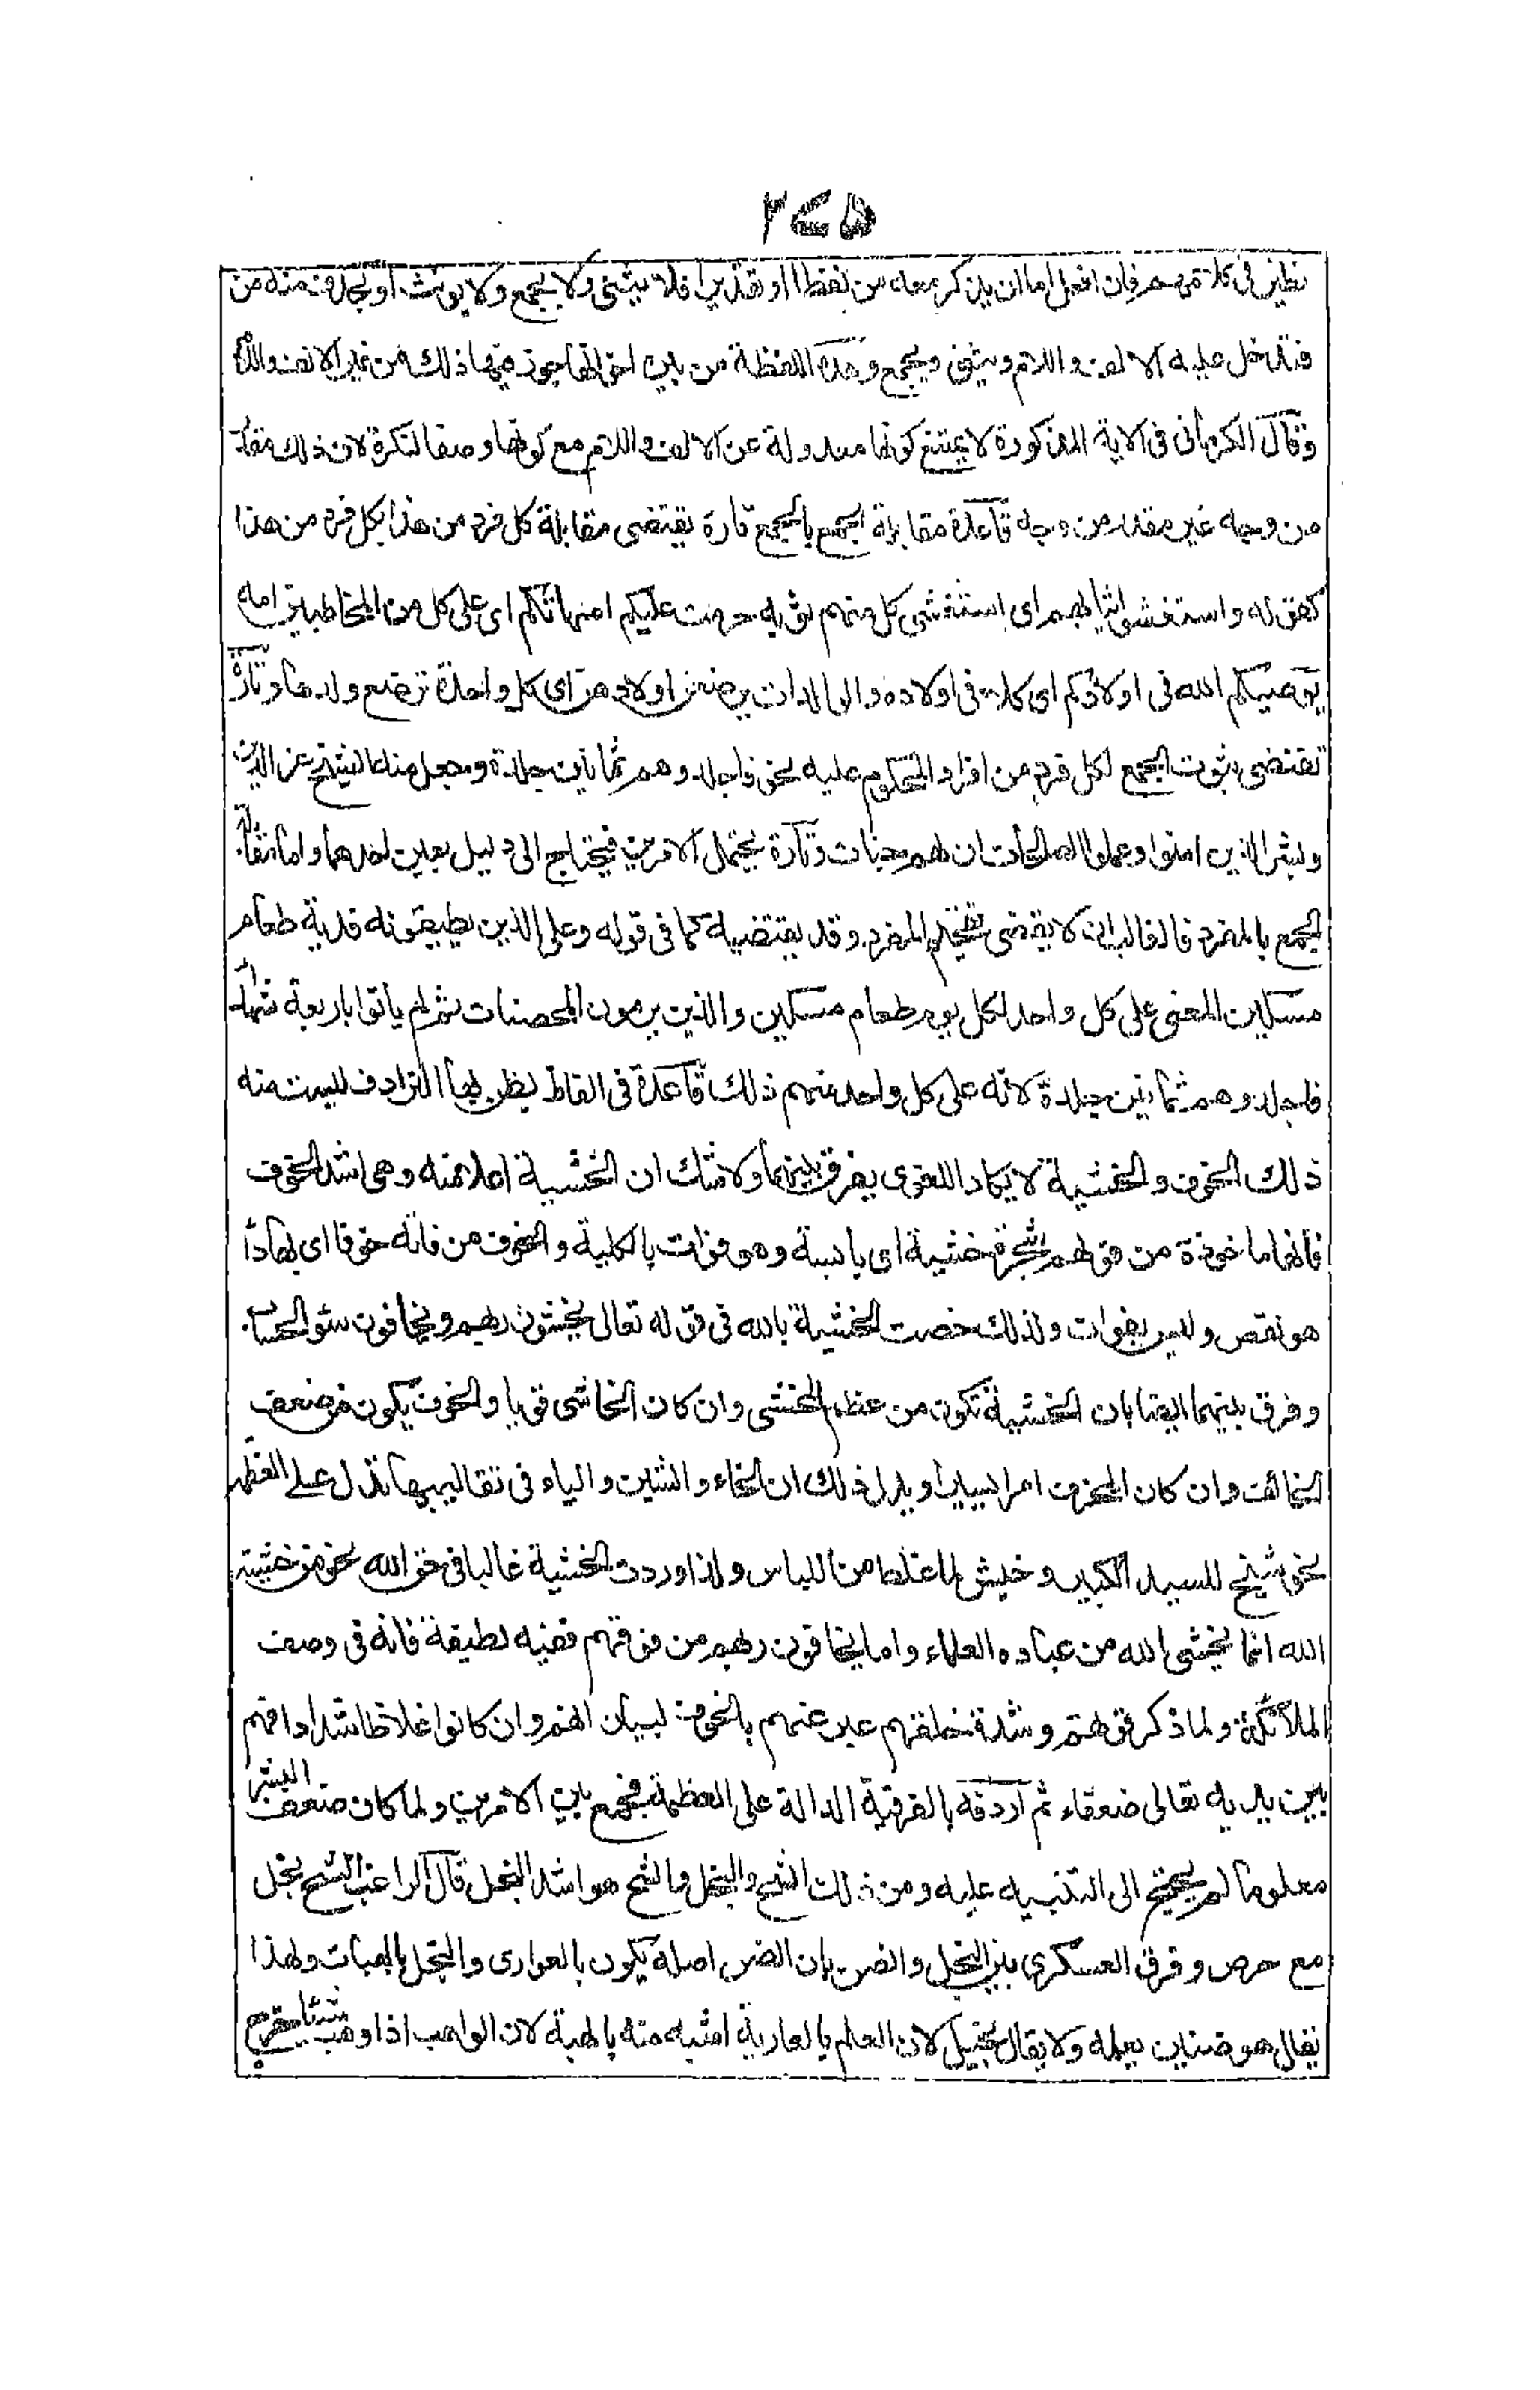 ٢٧٥
نظير فى كلامهم فان افعل اما ان يذكر معه من لفظا او تقديرا فلا يثنى ولا يجمع ولا يونث او يحذف منه من
فتدخل عليه الالف واللام ويثنى ويجمع وهذه اللفظة من بين اخواتها جوز فيها ذلك من غير الالف واللام
وقال الكرمانى فى الاية المذكورة لا يمتنع كونها معدولة عن الالف واللام مع كونها وصفا لنكرة لان ذلك مقدر
من وجه غير مقدر من وجه قاعدة مقابلة الجمع بالجمع تارة يقتضى مقابلة كل فرد من هذا بكل فرد من هذا
كقوله واستغشوا ثيابهم اى استغشى كل منهم ثوبه حرمت عليكم امهاتكم اى على كل من المخاطبين امه
يوصيكم الله فى اولادكم اى كلا فى اولاده والوالدات يرضعن اولادهن اى كل واحدة ترضع ولدها وتارة
تقتضى ثبوت الجمع لكل فرد من افراد المحكوم عليه نحو فاجلدوهم ثمانين جلدة وجعل منه الشيخ عز الدين
وبشر الذين امنوا وعملوا الصالحات ان لهم جنات وتارة يحتمل الامرين فيحتاج الى دليل يعين احدهما واما مقابلة
الجمع بالمفرد فالغالب ان لا يقتضى تعميم المفرد وقد يقتضيه كما فى قوله وعلى الذين يطيقونه فدية طعام
مسكين المعنى على كل واحد لكل يوم طعام مسكين والذين يرمون المحصنات ثم لم يأتوا باربعة شهداء
فاجلدوهم ثمانين جلدة لانه على كل واحد منهم ذلك قاعدة فى الفاظ يظن بها الترادف وليست منه
ذلك الخوف والخشية لا يكاد اللغوى يفرق بينهما ولا شك ان الخشية اعلا منه وهى اشد الخوف
فانها ماخوذة من قولهم شجرة خشية اى يابسة وهو فوات بالكلية والخوف من ناقه خوفا اى بها داء
هو نقص وليس بفوات ولذلك خصت الخشية بالله فى قوله تعالى يخشون ربهم ويخافون سوء الحساب
وفرق بينهما ايضا بان الخشية تكون من عظم المخشى وان كان الخاشى قويا والخوف يكون من ضعف
الخائف وان كان المخوف امرا يسيرا ويدل لذلك ان الخاء والشين والياء فى تقاليبها تدل على العظمة
نحو شيخ للسيد الكبير وخيش لما غلظ من اللباس ولذا وردت الخشية غالبا فى حق الله نحو من خشية
الله انما يخشى الله من عباده العلماء واما يخافون ربهم من فوقهم ففيه لطيفة فانه فى وصف
الملائكة ولما ذكر قوتهم وشدة خلقهم عبر عنهم بالخوف لبيان انهم وان كانوا غلاظا شدادا فهم
بين يديه تعالى ضعفاء ثم اردفه بالفوقية الدالة على العظمة فجمع بين الامرين ولما كان ضعف البشر
معلوما لم يحتج الى التنبيه عليه ومن ذلك الشح والبخل والشح هو اشد البخل قال الراغب الشح بخل
مع حرص وفرق العسكرى بين البخل والضن بان الضن اصله يكون بالعوارى والبخل بالهبات ولهذا
يقال هو ضنين بعلمه ولا يقال بخيل لان العلم بالعارية اشبه منه بالهبة لان الواهب اذا وهب شيئا خرج